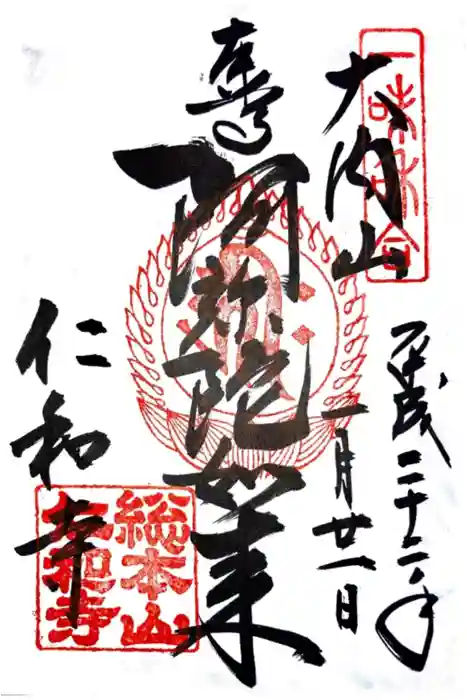 一味和合
大内山
平成二十二年
一月廿一日
阿弥陀如来
仁和寺
総本山
仁和寺